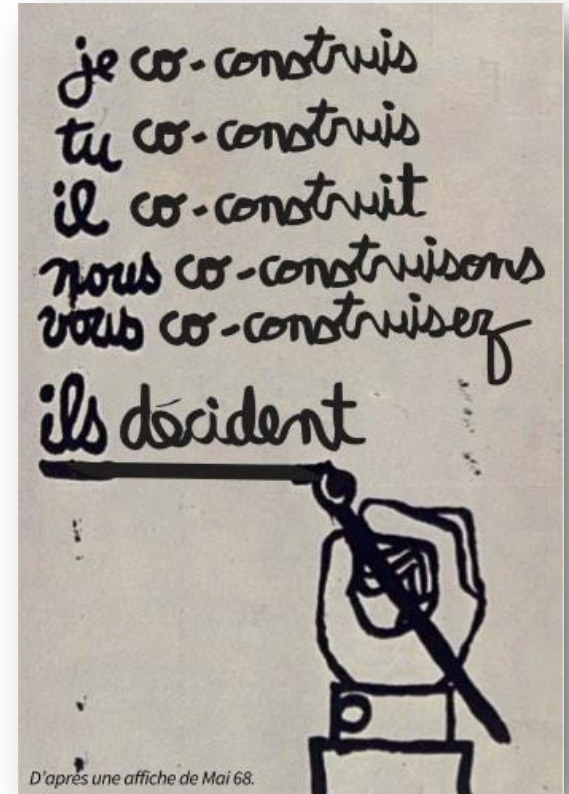 je co-construis
tu co-construis
il co-construit
nous co-construisons
vous co-construisez
ils décident
D'après une affiche de Mai 68.